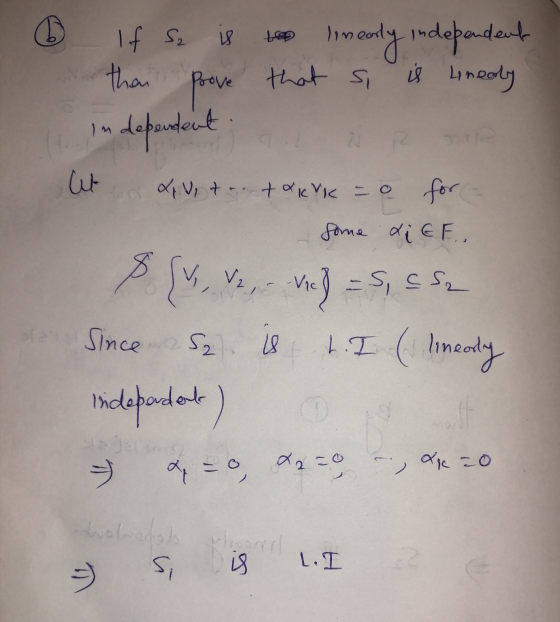 (b) If S₂ is linearly independent
then prove that S₁ is linearly
independent.
Let α₁V₁ + -- + αₖVₖ = 0 for
some αᵢ ∈ F.
{V₁, V₂, -- Vₖ} = S₁ ⊆ S₂
Since S₂ is L.I (linearly
independent)
⇒ α₁ = 0, α₂ = 0, --, αₖ = 0
⇒ S₁ is L.I